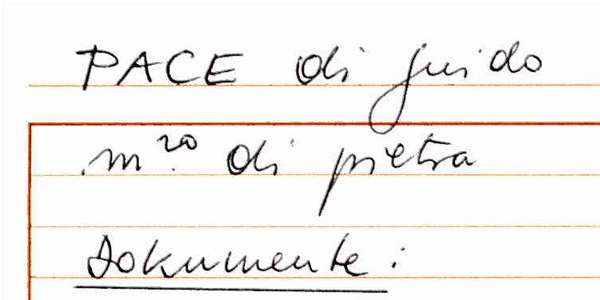 PACE di guido
m.ro di pietra
Dokumente: